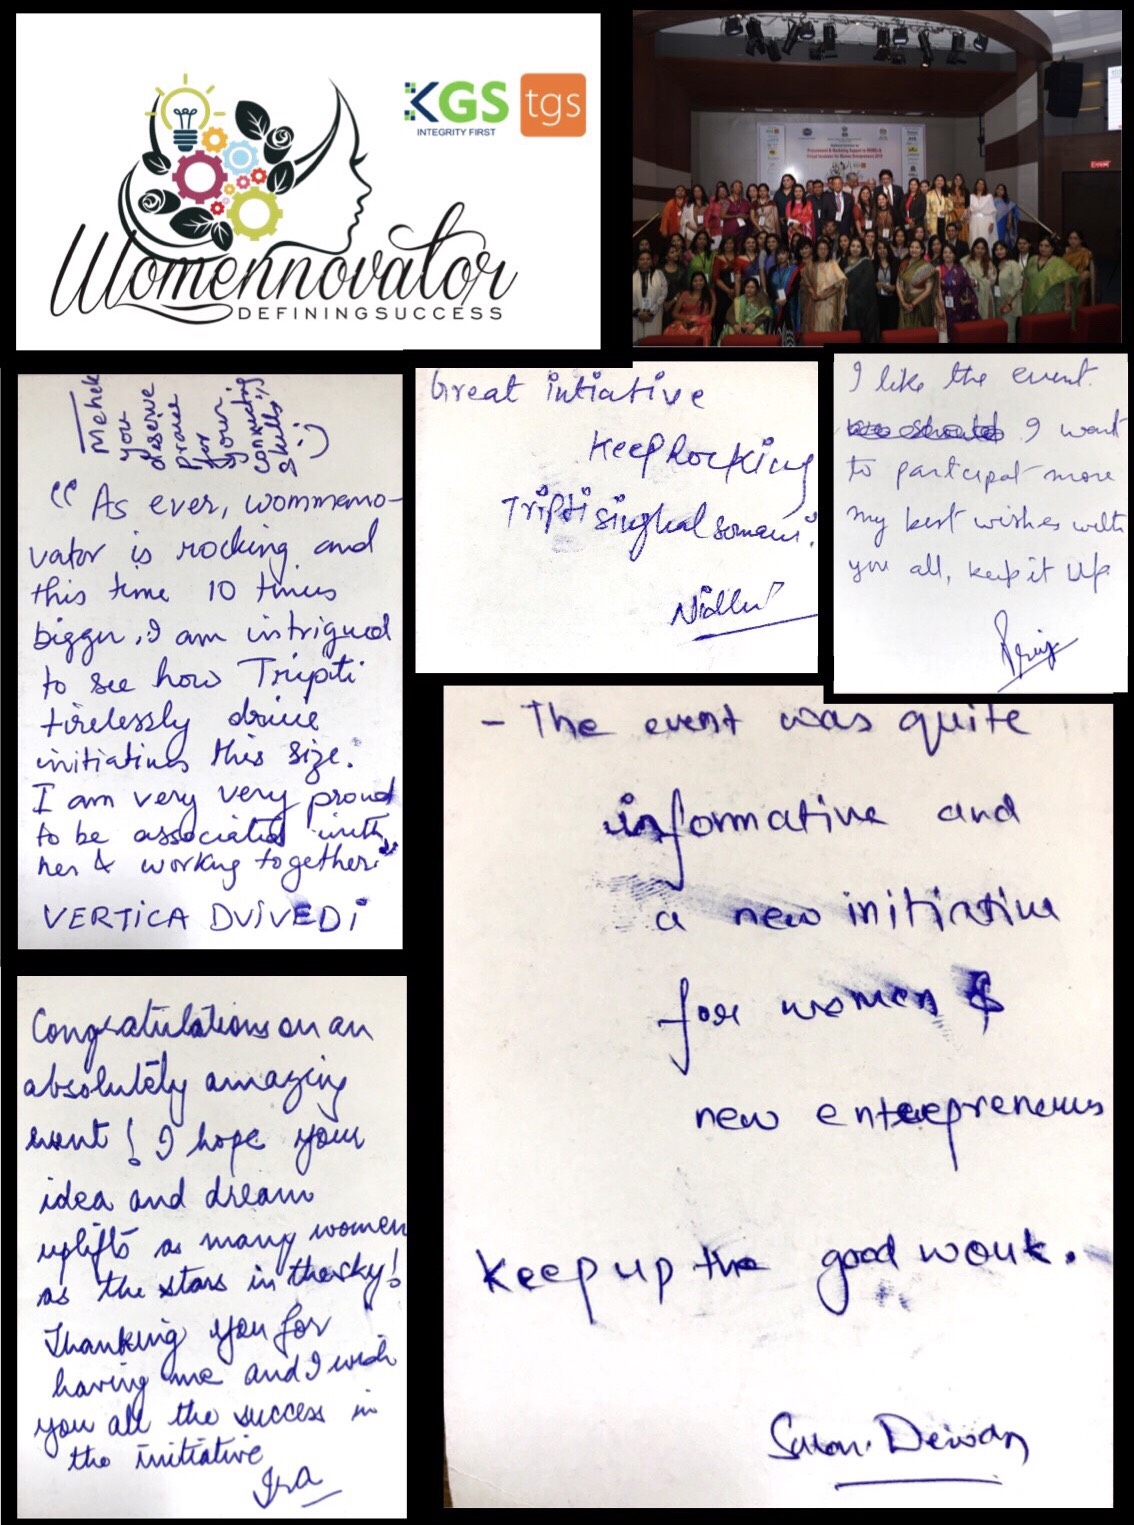 KGS
INTEGRITY FIRST
tgs
Womennovator
DEFININGSUCCESS
Procurement & Marketing Support to MSMEs &
Virtual Incubator for Women Entrepreneurs 2019
Mehek
you
deserve
praise
for
your
skills :)
“ As ever, wommenno-
vator is rocking and
this time 10 times
bigger. I am intrigued
to see how Tripti
tirelessly drive
initiatives this size.
I am very very proud
to be associated with
her & working together.
VERTICA DVIVEDI
Great intiative
Keep Rocking
Tripti singhal somani.
Nidhi
I like the event.
I want
to participat more
my best wishes with
you all, keep it Up
- The event was quite
informative and
a new initiative
for women &
new enterepreneurs
keep up the good work.
Dewan
Congratulations on an
absolutely amazing
event! I hope your
idea and dream
uplifts as many women
as the stars in the sky!
Thanking you for
having me and I wish
you all the success in
the initiative
Ira